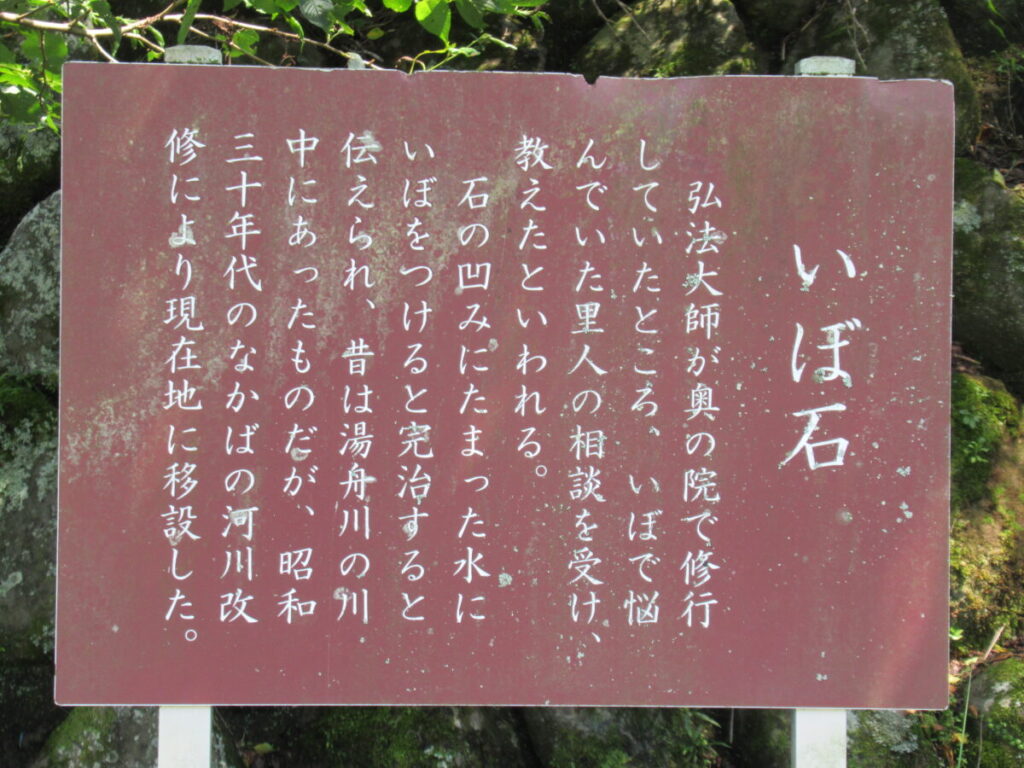 いぼ石
弘法大師が奥の院で修行
していたところ、いぼで悩
んでいた里人の相談を受け、
教えたといわれる。
石の凹みにたまった水に
いぼをつけると完治すると
伝えられ、昔は湯舟川の川
中にあったものだが、昭和
三十年代のなかばの河川改
修により現在地に移設した。